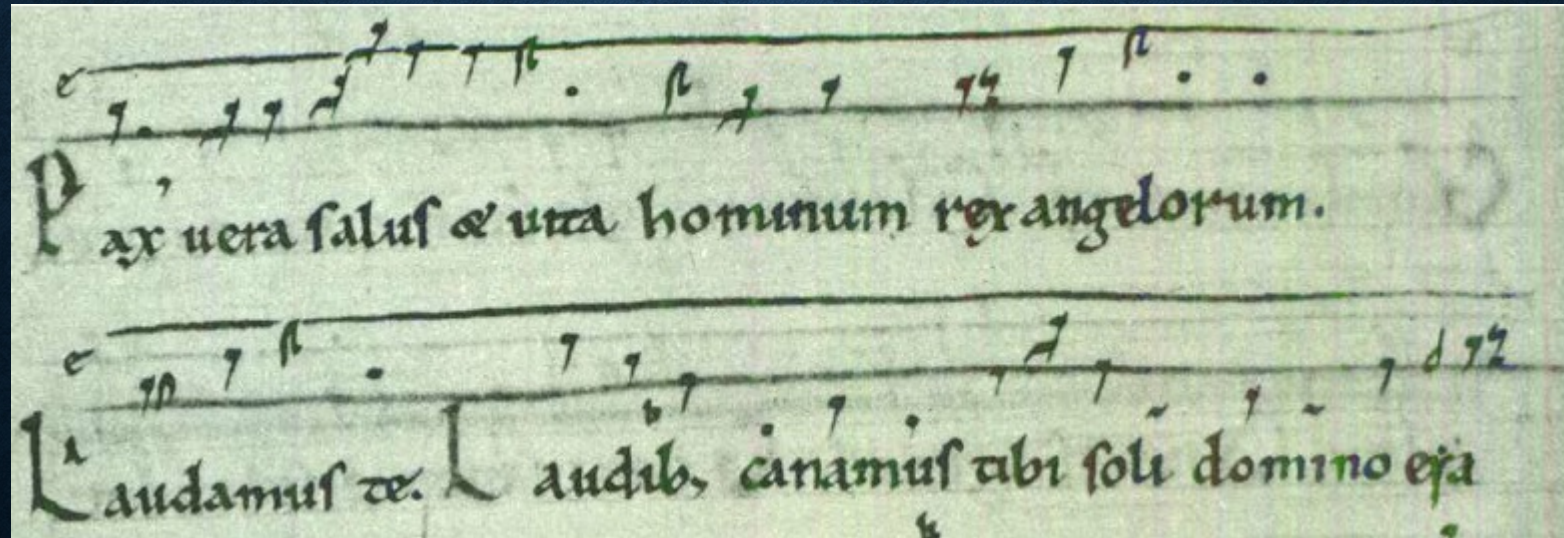 Pax uera saluſ & uita hominum rex angelorum.
Laudamuſ te. Laudib; canamuſ tibi ſoli domino eia